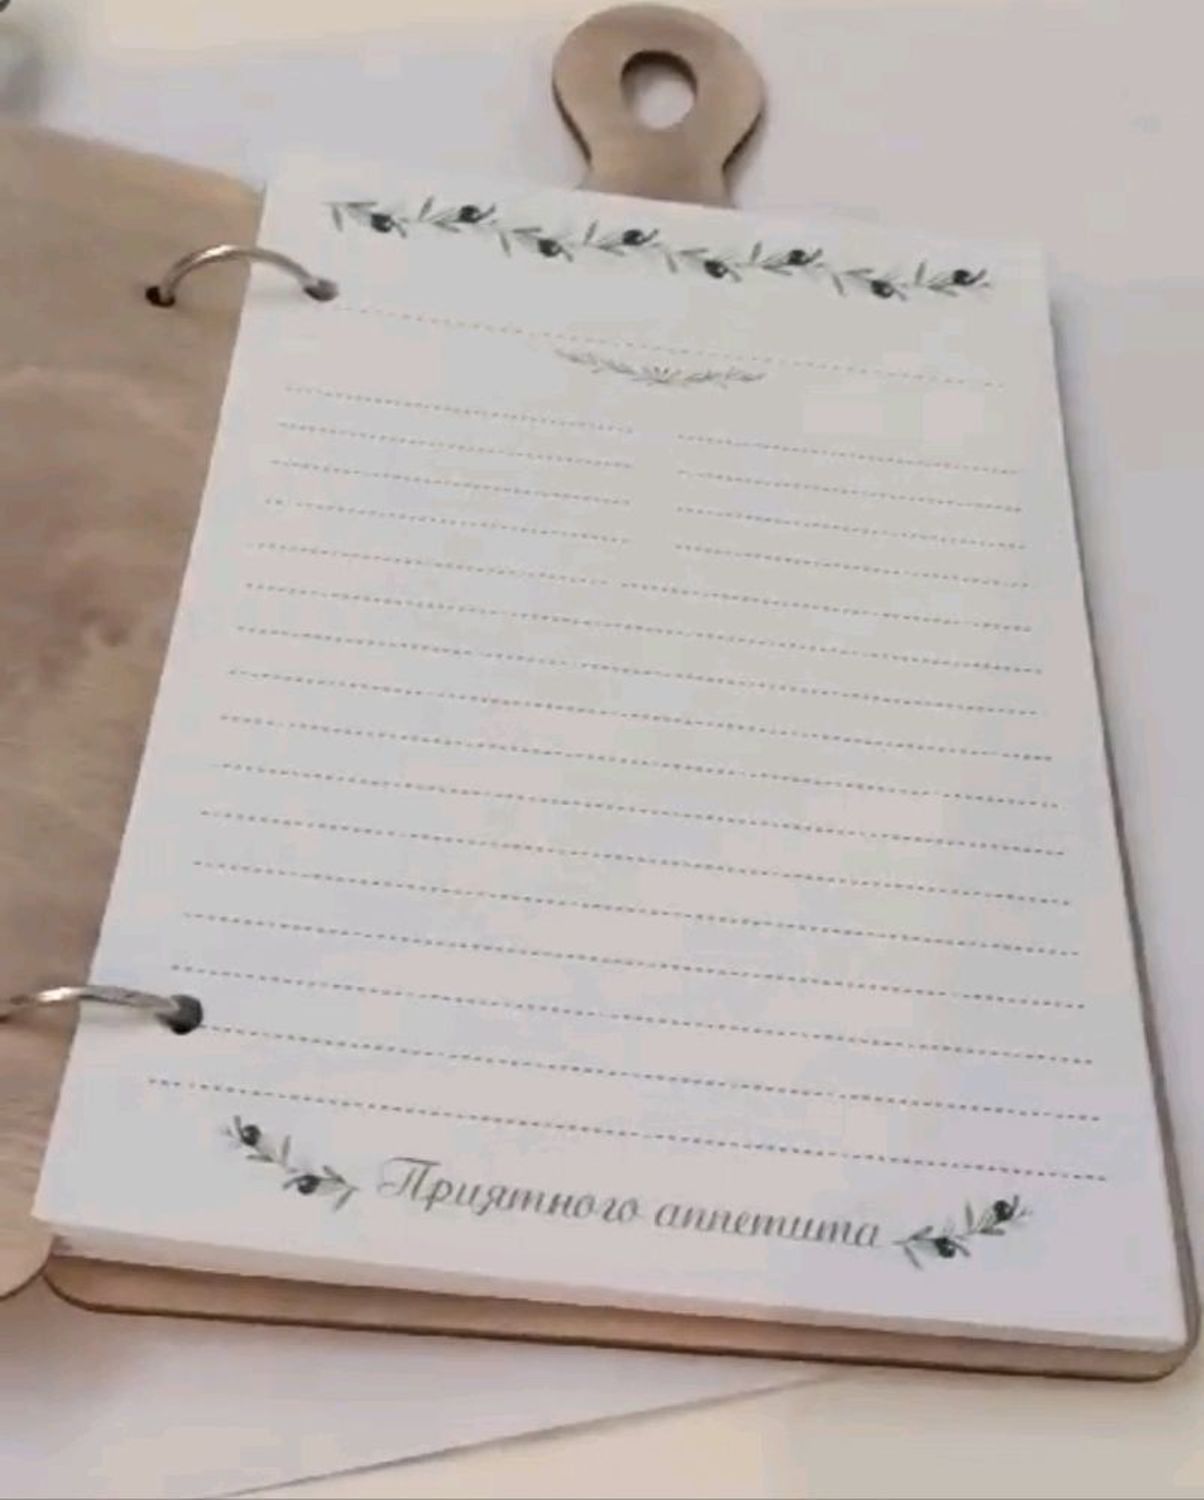 Приятного аппетита